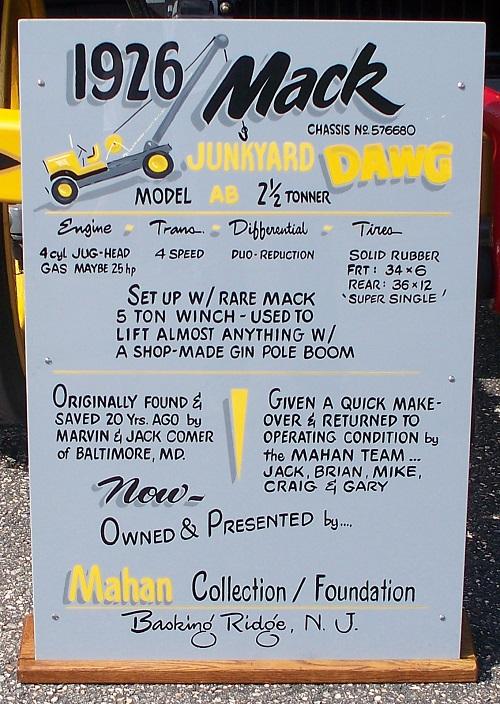 1926 Mack
CHASSIS NO. 576680
JUNKYARD DAWG
MODEL AB 2½ TONNER
Engine - Trans. - Differential - Tires
4 cyl JUG-HEAD
GAS MAYBE 25 hp
4 SPEED
DUO-REDUCTION
SOLID RUBBER
FRT: 34×6
REAR: 36×12
'SUPER SINGLE'
SET UP W/ RARE MACK
5 TON WINCH - USED TO
LIFT ALMOST ANYTHING W/
A SHOP-MADE GIN POLE BOOM
ORIGINALLY FOUND &
SAVED 20 Yrs. AGO by
MARVIN & JACK COMER
of BALTIMORE, MD.
GIVEN A QUICK MAKE-
OVER & RETURNED TO
OPERATING CONDITION by
the MAHAN TEAM ...
JACK, BRIAN, MIKE,
CRAIG & GARY
Now-
OWNED & PRESENTED by....
Mahan Collection / Foundation
Basking Ridge, N. J.